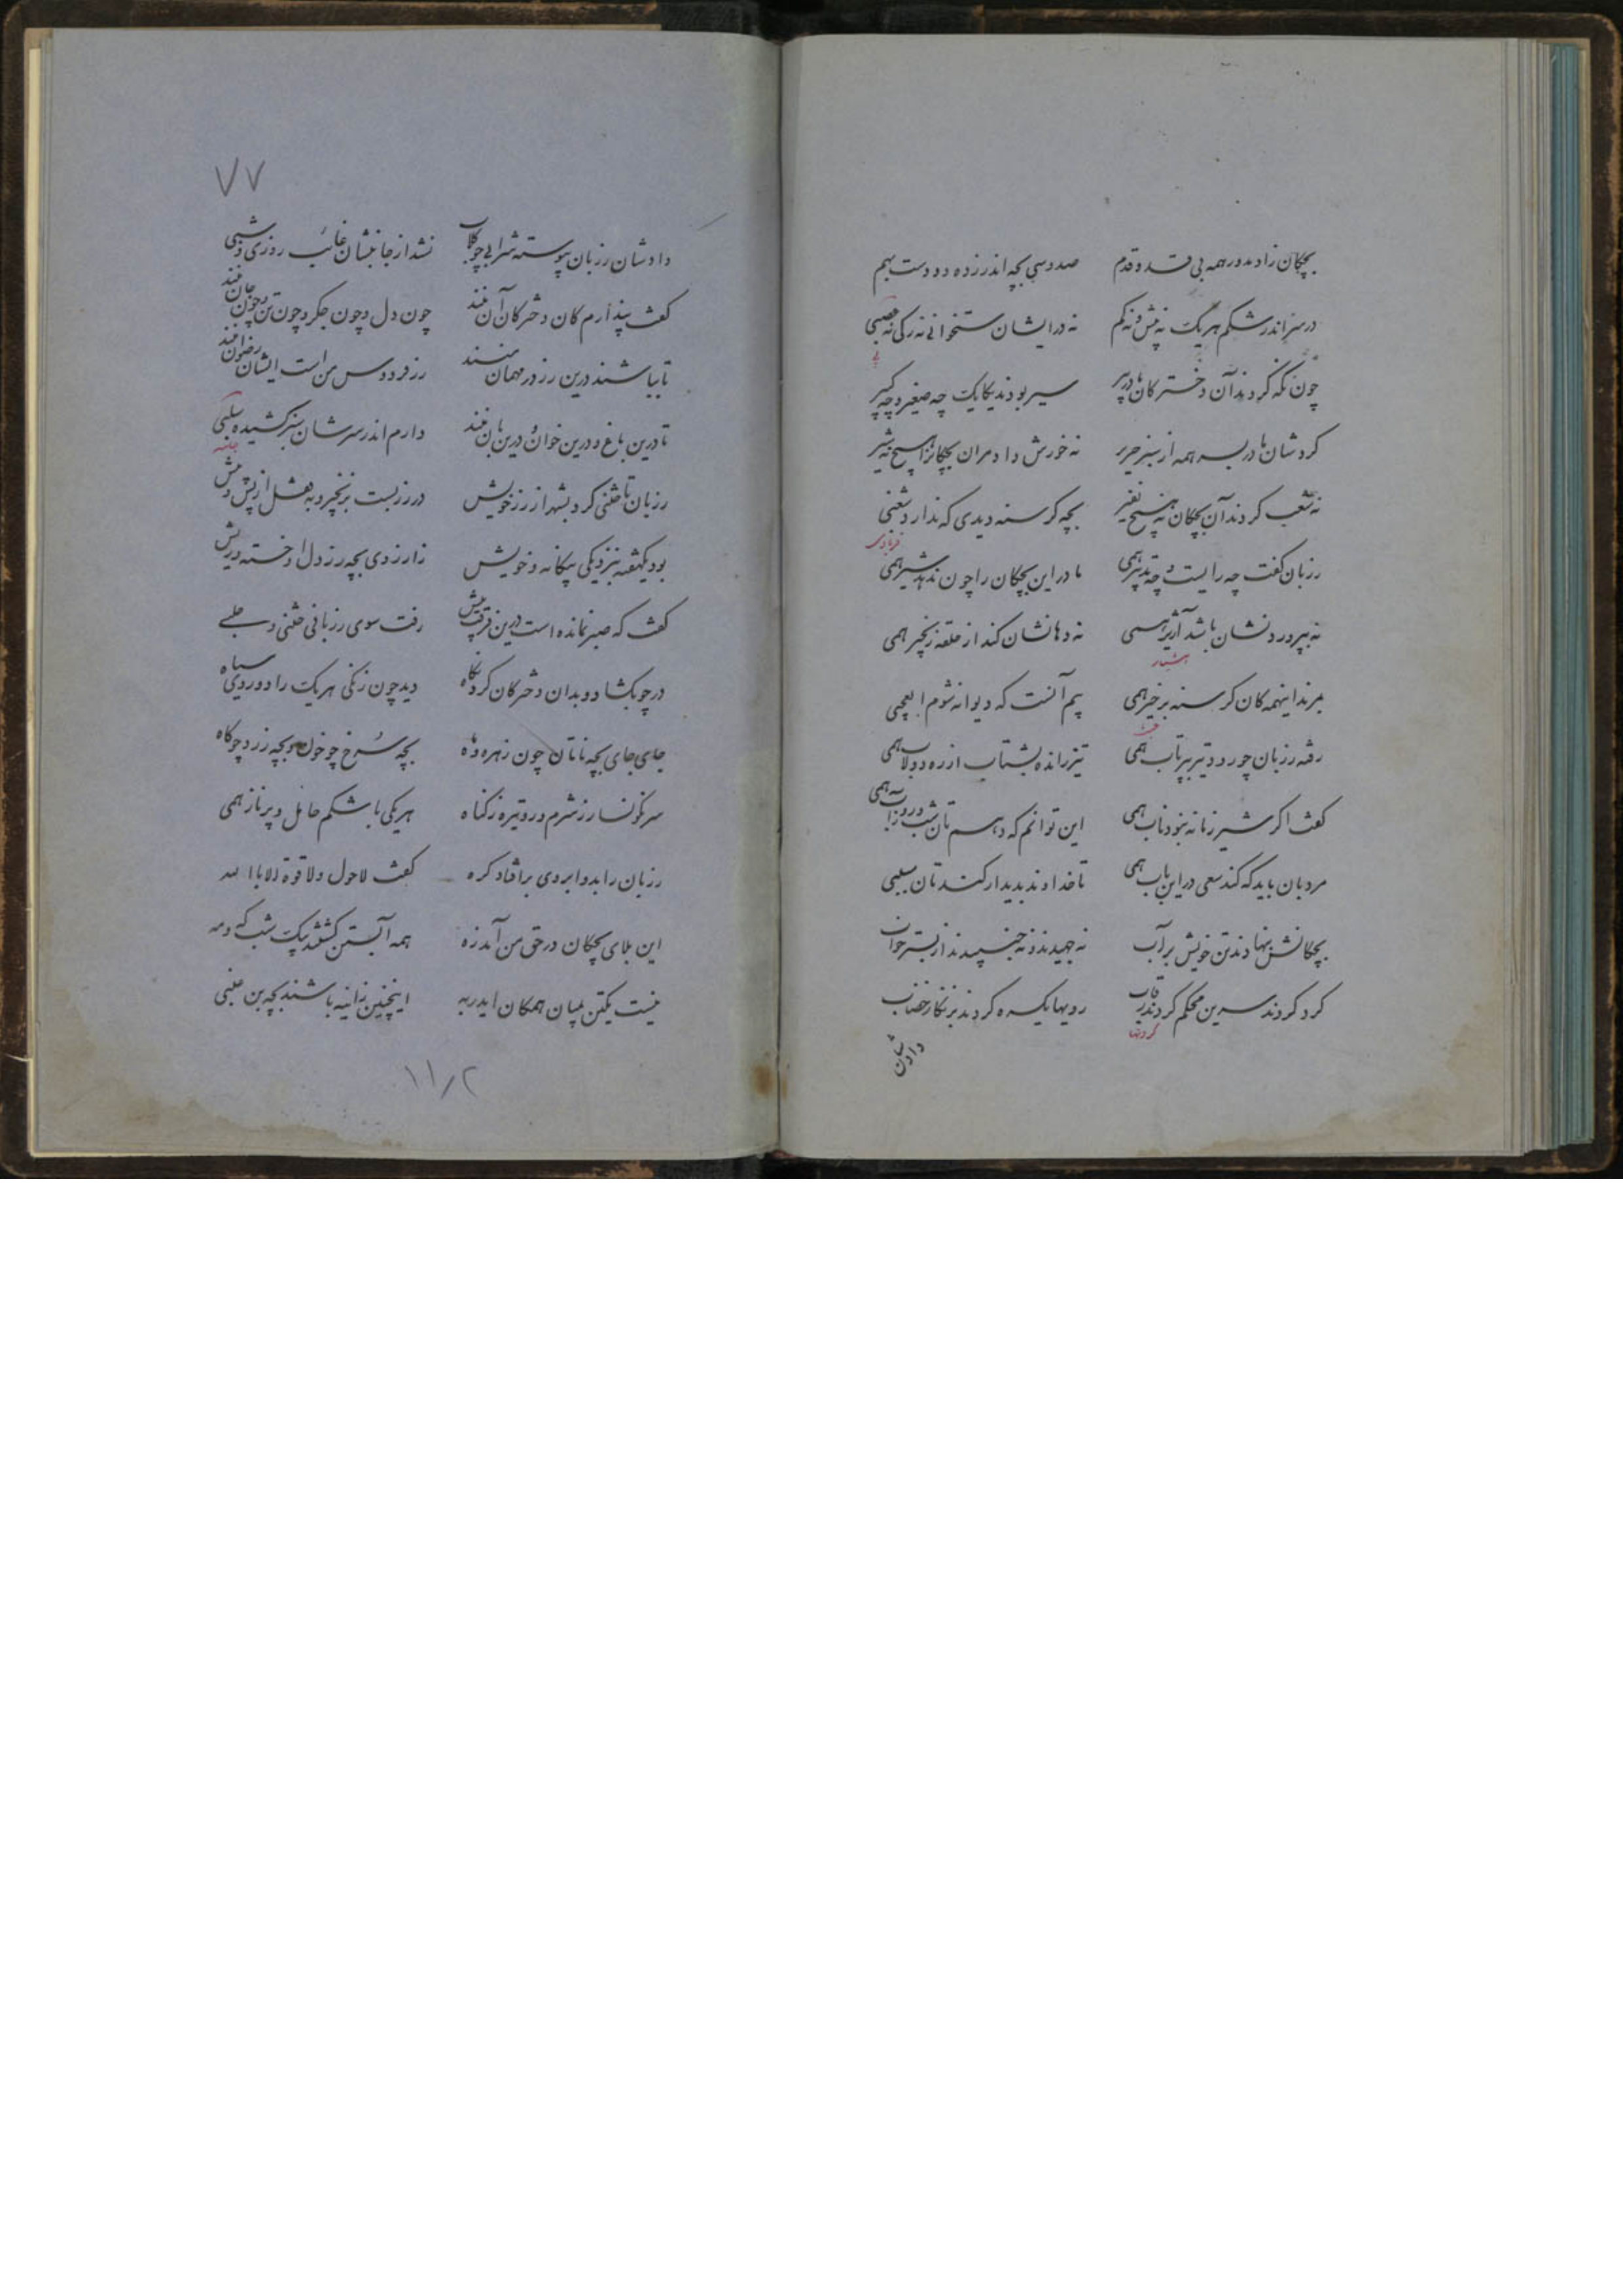 بچگان زاد مدور همه بی قد و قدم صد و سی بچه اندر زده دو دست بهم
در سر اندر شکم هر یک نه بیش و نه کم نه در ایشان ستخوانی نه رگی نه عصبی
چون نگه کرد بدان دخترکان مادر پیر سیر بودند یکایک چه صغیر و چه کبیر
کردشان مادر بستر همه از سبز حریر نه خورش داد مر آن بچگانرا هیچ نه شیر
نه شغب کردند آن بچگان نه هیچ نفیر بچه گرسنه دیدی که ندارد شغبی
رزبان گفت چه رایست و چه تدبیر همی مادر این بچگان را چون ندهد شیر همی
نه بپروردنشان باشد آژیر همی نه دهانشان کند از حلقه زنجیر همی
بمرند اینهمه کان گرسنه بر خیر همی بیم آنست که دیوانه شوم ای عجبی
رفته رزبان چو رود تیر بپرتاب همی تیز رانده بشتاب از ره دولاب همی
گفت اگر شیر ز مادر نبود ناب همی این توانم که دهمتان شب و روز آب همی
مردبان باید که کند سعی در این باب همی تا خداوند پدیدار کندتان سببی
بچگانش بنهادند تن خویش بر آب نه جهیدند و نه جنبیدند از بستر خواب
گرد کردند سرین محکم کردند رقاب رویها یکسره کردند بزنگار خضاب
دادشان
۷۷
دادشان رزبان پیوسته شرابی چو گلاب نشد از جانبشان غائب روزی و شبی
گفت پندارم کان دخترکان آن منند چون دل و چون جگر و چون تن و چون جان منند
تا بباشند درین رز در مهمان منند رز فردوس من است ایشان رضوان منند
تا درین باغ و درین خوان و درین مان منند دارم اندر سرشان سبز کشیده سلبی
رزبان تاختنی کرد بشهر از رز خویش در رز بست بزنجیر و بقفل از پس و پیش
بود یکهفته بنزدیکی بیگانه و خویش ز آرزوی بچه رز دل او خسته و ریش
گفت که صبر نمانده است درین فرقت بیش رفت سوی رز با تاختنی و جلبی
در چو بگشاد و بدان دخترکان کرد نگاه دید چون زنگی هر یک را دو روی سیاه
جای جای بچه تابان چون زهره و ماه بچه سرخ چو خون و بچه زرد چو کاه
سرنگونسار ز شرم و رو تیره ز گناه هر یکی با شکم حامل و پر ناز همی
رزبان را بدو ابروی بر افتاد گره گفت لا حول و لا قوة الا بالله
این بلای بچگان در حق من آمد زه همه آبستن گشتند بیک شب که و مه
نیست یکتن بمیان همگان ایدر به اینچنین زانیه باشند بچه بن عنبی
۱۱/۲